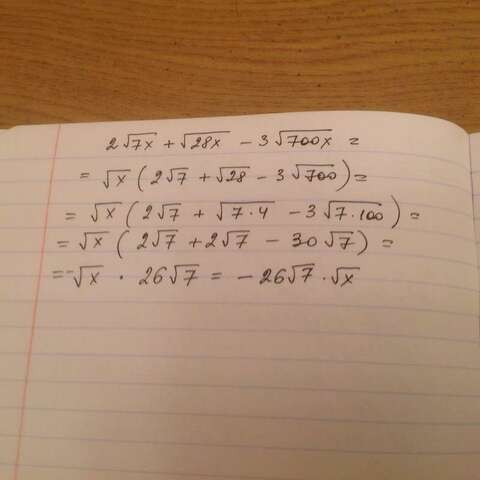 2√7x + √28x - 3√700x =
= √x (2√7 + √28 - 3√700) =
= √x (2√7 + √7·4 - 3√7·100) =
= √x (2√7 + 2√7 - 30√7) =
= -√x · 26√7 = -26√7 · √x